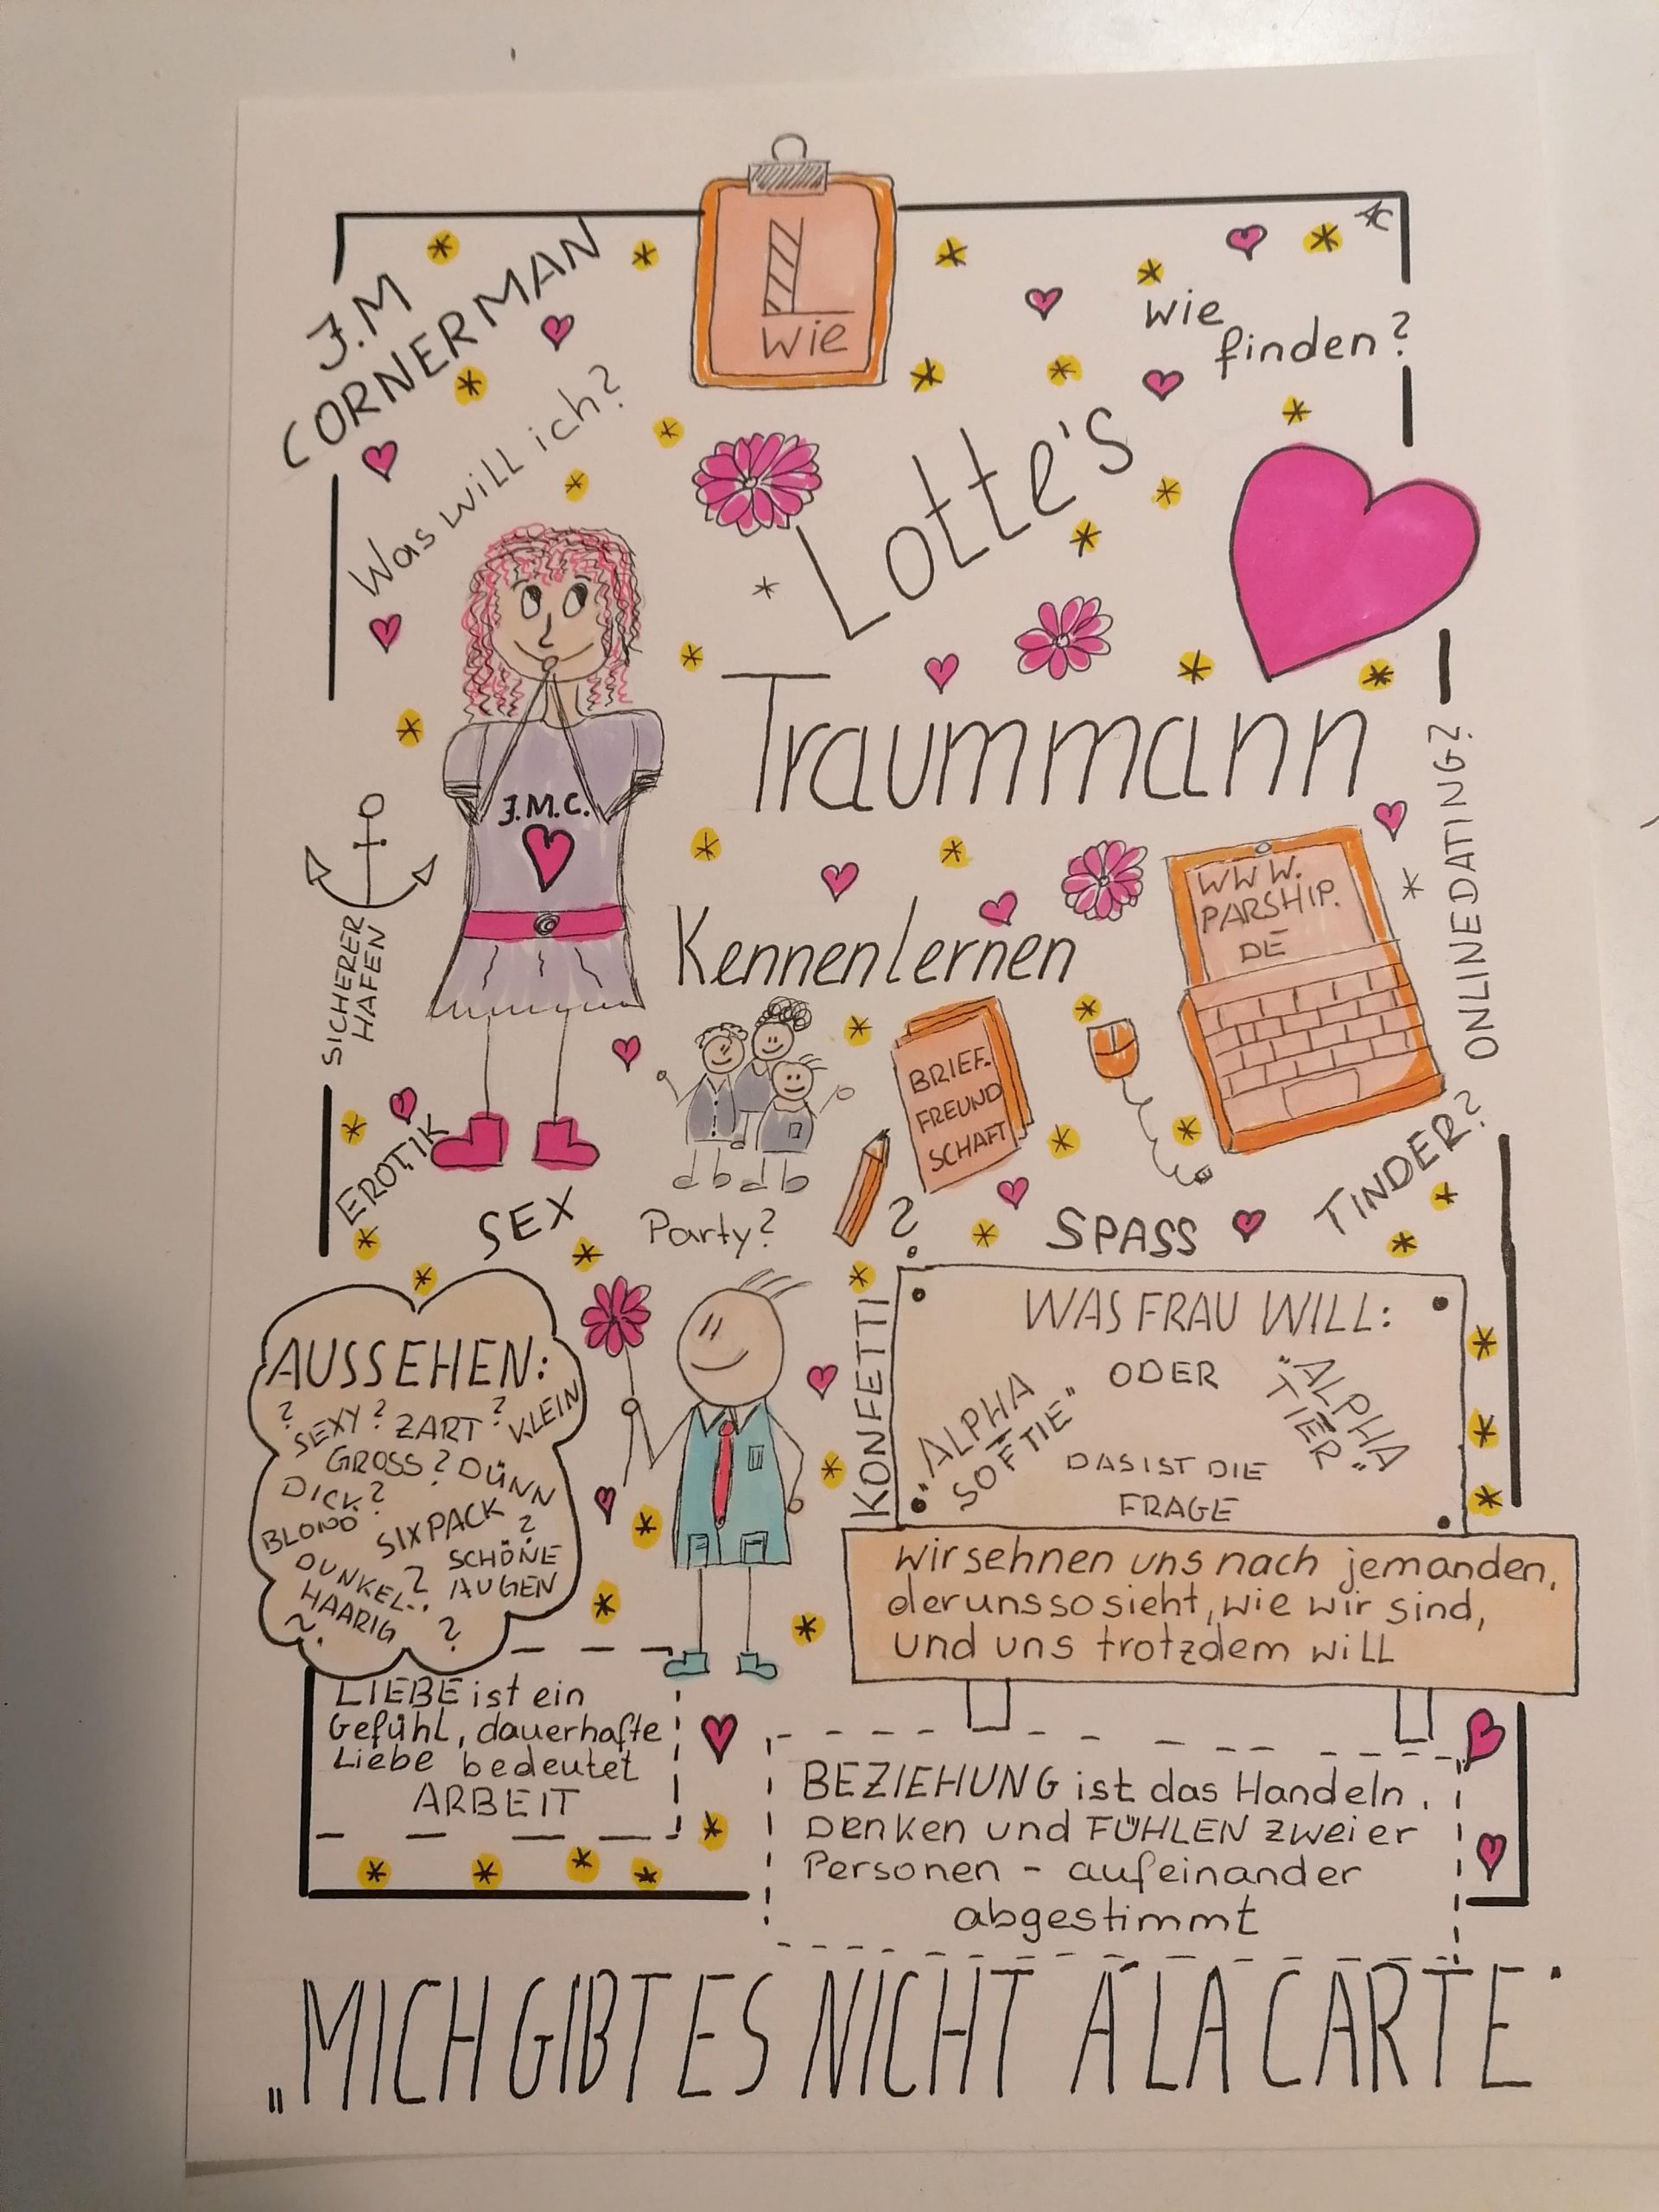 J.M
CORNERMAN
L
wie
wie
finden?
Was will ich?
Lotte's
Traummann
J.M.C.
Kennenlernen
WWW.
PARSHIP.
DE
ONLINEDATING?
SICHERER
HAFEN
BRIEF-
FREUND
SCHAFT
EROTIK
SEX
Party?
?
SPASS
TINDER?
AUSSEHEN:
? SEXY? ZART? KLEIN
GROSS? DÜNN
DICK?
BLOND SIXPACK ?
DUNKEL.. ? SCHÖNE
HAARIG AUGEN
?
KONFETTI
WAS FRAU WILL:
"ALPHA
SOFTIE"
ODER
"ALPHA
TIER"
DAS IST DIE
FRAGE
wir sehnen uns nach jemanden,
der uns so sieht, wie wir sind,
und uns trotzdem will
LIEBE ist ein
Gefühl, dauerhafte
Liebe bedeutet
ARBEIT
BEZIEHUNG ist das Handeln,
Denken und FÜHLEN zweier
Personen - aufeinander
abgestimmt
„MICH GIBT ES NICHT Á LA CARTE"